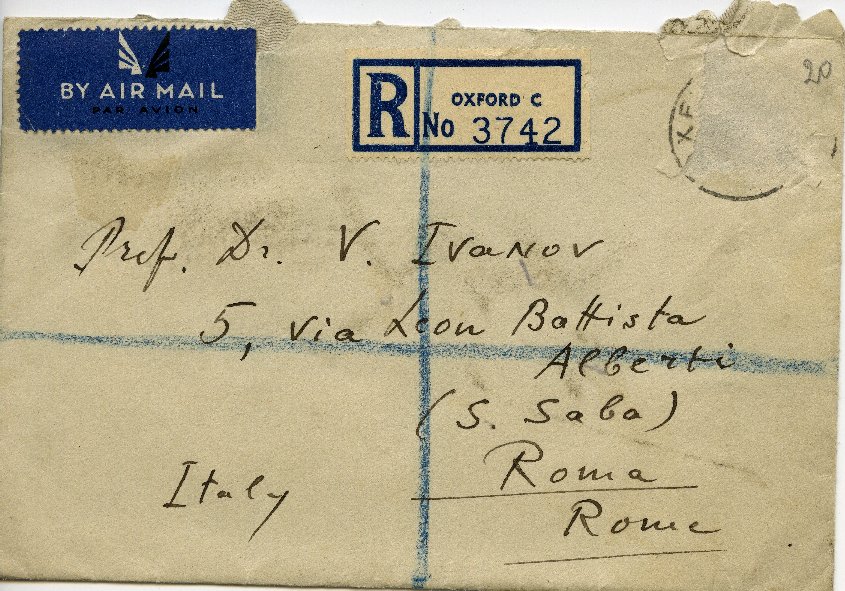 BY AIR MAIL
PAR AVION
R
OXFORD C
No 3742
20
Prof. Dr. V. Ivanov
5, via Leon Battista
Alberti
(S. Saba)
Roma
Italy
Rome